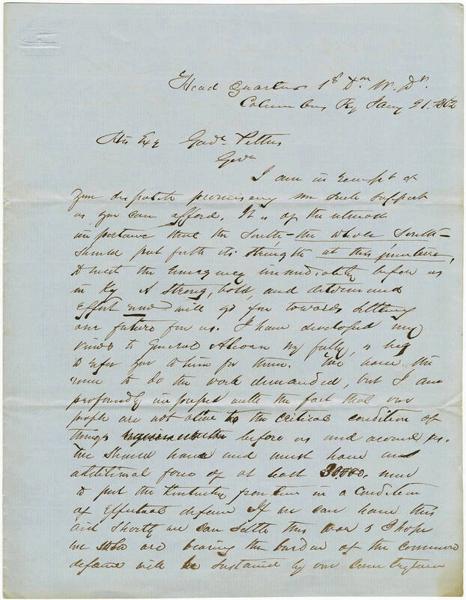 Head Quarters 1st Dn W. Dt.
Columbus Ky Jany 21. 1862
His Exy Govr Pettus
Govr
I am in receipt of
your dispatch promising me such support
as you can afford. It is of the utmost
importance that the South - the whole South -
should put forth its strength at this juncture,
to meet the emergency immediately before us
in Ky. A strong, bold, and determined
effort now will go far towards settling
our future for us. I have developed my
views to General Alcorn very fully, & beg
to refer you to him for them. We have the
men to do the work demanded, but I am
profoundly impressed with the fact that our
people are not alive to the critical condition of
things before us and around us.
We should have and must have an
additional force of at least 30000 men
to put the Kentucky frontier in a condition
of effectual defense. If we can have this
aid shortly we can settle this war & I hope
we who are bearing the burden of the common
defense will be sustained by our